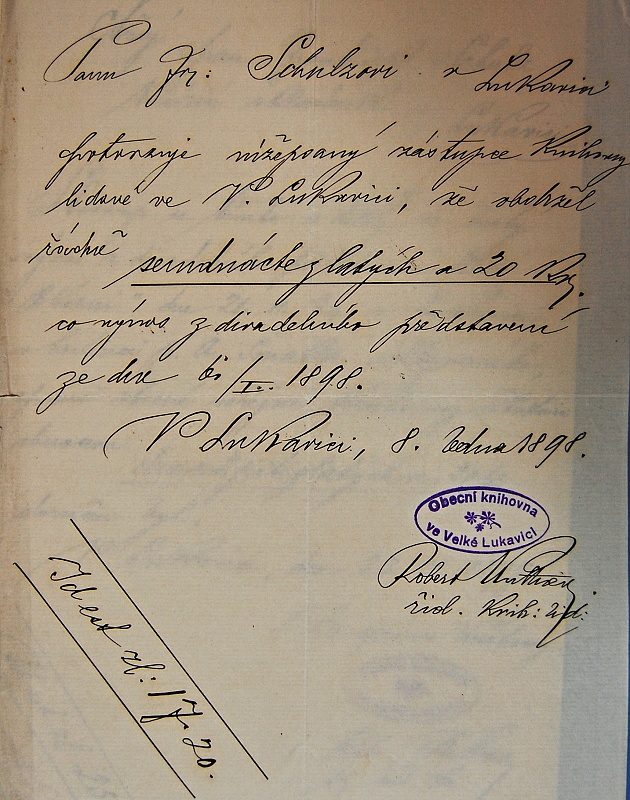 Panu Frz: Schulzovi v Lukavici
potvrzuje nížepsaný zástupce Knihovny
lidové ve V. Lukavici, že obdržel
řádně sedmnáct zlatých a 20 Kr.
co výnos z divadelního představení
ze dne 6/I. 1898.
V Lukavici, 8. ledna 1898.
Obecní knihovna
ve Velké Lukavici
Robert
říd. Knih: lid:
Id est zl: 17.20.